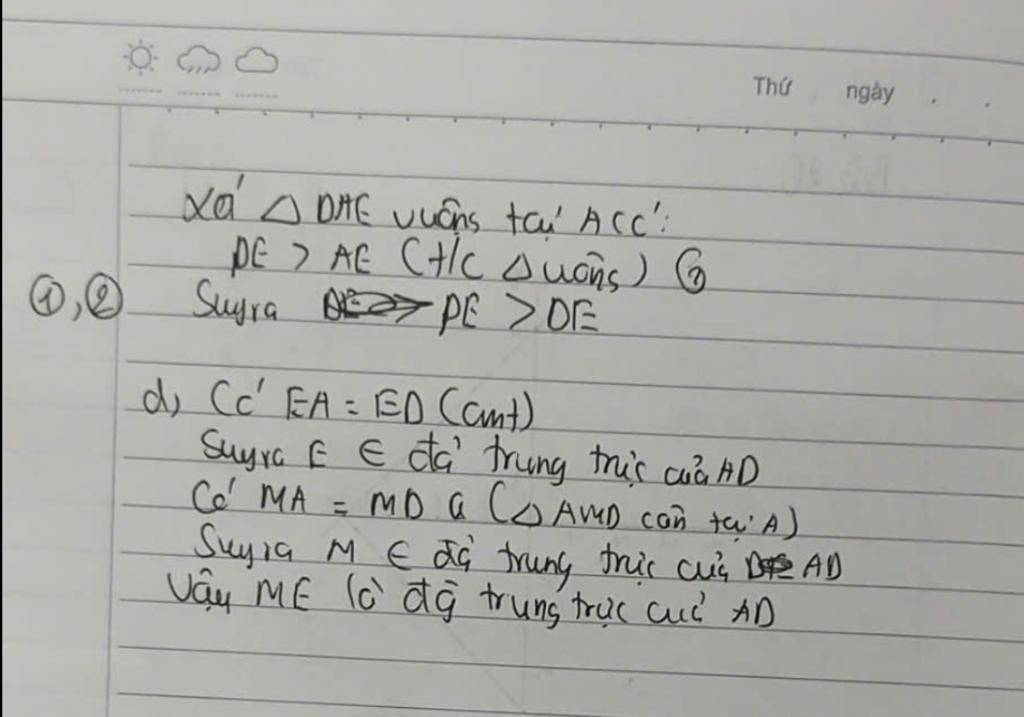 Thứ ngày
Xét △ DAE vuông tại A có:
DE > AE (t/c △ uông) ②
①,② Suy ra PE > DE
d, Có EA = ED (cmt)
Suy ra E ∈ đg trung trực của AD
Có MA = MD (△ AMD cân tại A)
Suy ra M ∈ đg trung trực của AD
Vậy ME là đg trung trực của AD